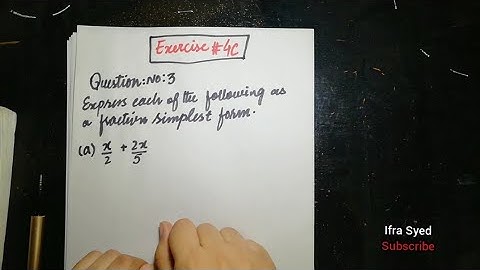 Exercise #4C
Question:No:3
Express each of the following as
a fraction simplest form.
(a) x/2 + 2x/5
Ifra Syed
Subscribe